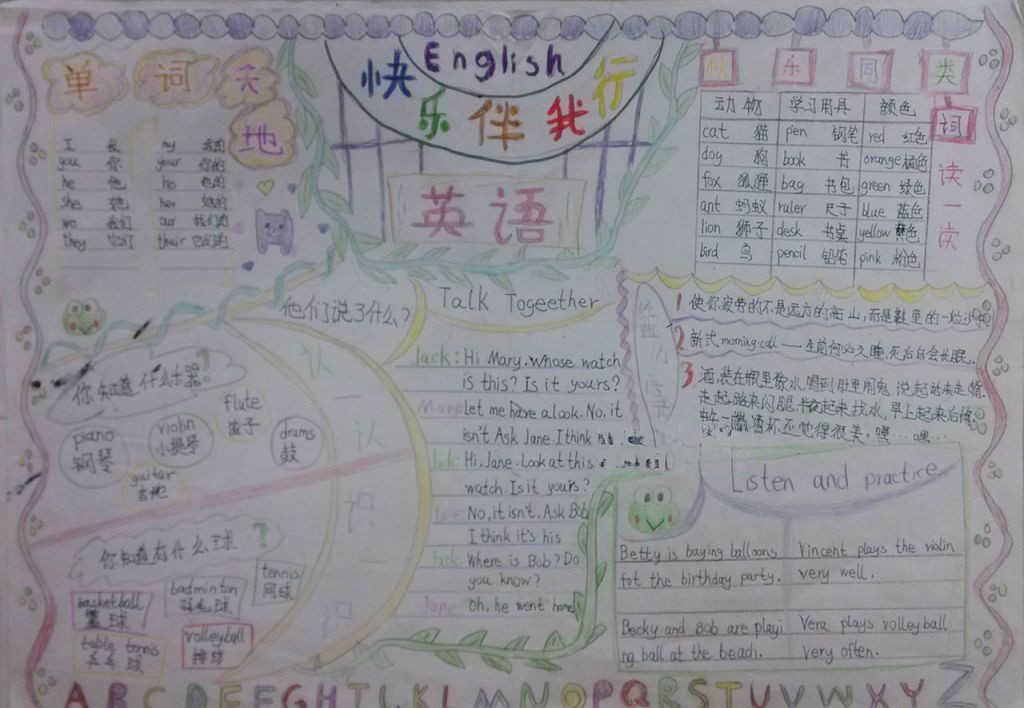 English
快乐伴我行
英语
单词天地
I 我 my 我的
you 你 your 你的
he 他 his 他的
she 她 her 她的
we 我们 our 我们的
they 它们 their 它们的
快乐同类词
读一读
动物 学习用具 颜色
cat 猫 pen 钢笔 red 红色
dog 狗 book 书 orange 橘色
fox 狐狸 bag 书包 green 绿色
ant 蚂蚁 ruler 尺子 blue 蓝色
lion 狮子 desk 书桌 yellow 黄色
bird 鸟 pencil 铅笔 pink 粉色
他们说了什么?
Talk Togeether
Jack: Hi Mary. whose watch
is this? Is it yours?
Mary: Let me have a look. No, it
isn't Ask Jane. I think
Jack: Hi, Jane. Look at this
watch. Is it yours?
Jane: No, it isn't. Ask Bob
I think it's his
Jack: Where is Bob? Do
you know?
Jane: Oh, he went home
认一认
识一识
你知道什么乐器?
piano 钢琴
violin 小提琴
flute 笛子
drums 鼓
guitar 吉他
你知道有什么球?
basketball 篮球
badminton 羽毛球
tennis 网球
table tennis 乒乓球
volleyball 排球
1 使你疲劳的不是远方的高山,而是鞋里的一粒沙
2 新式morning call——生前何必久睡,死后自会长眠..
3 酒,装在瓶里像水,喝到肚里闹鬼,说起话来走嘴,
走起路来闪腿,半夜起来找水,早上起来后悔,
Listen and practice
Betty is buying balloons
fot the birthday party.
Vincent plays the violin
very well.
Becky and Bob are playi
ng ball at the beach.
Vera plays volleyball
very often.
A B C D E F G H I J K L M N O P Q R S T U V W X Y Z